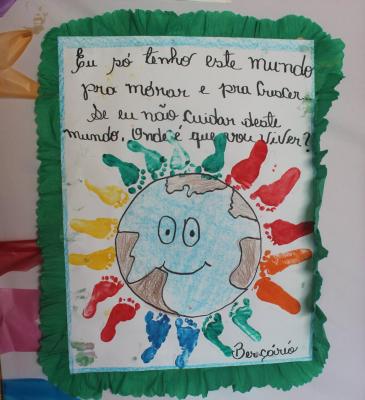 Eu só tenho este mundo
pra mórar e pra Crescer.
Se eu não Cuidar deste
mundo. Onde é que vou viver?
Berçário